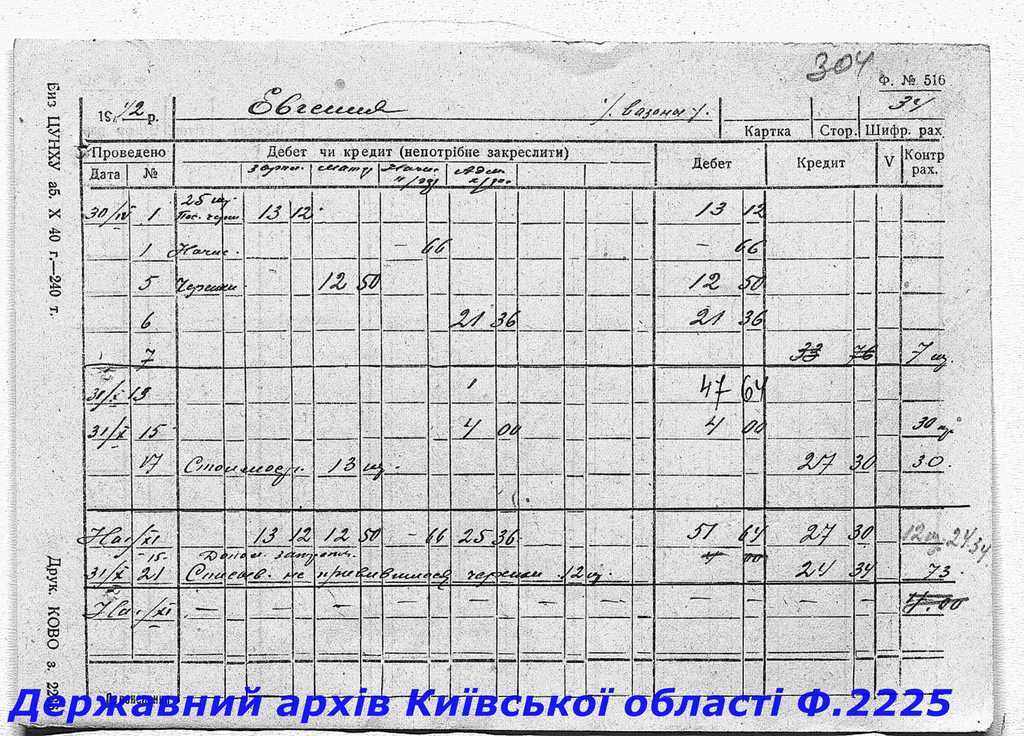 304
Ф. № 516
194/2 р. Евгения /. вазоны /. 34
Картка Стор. Шифр. рах
Проведено Дебет чи кредит (непотрібне закреслити) Дебет Кредит V Контр рах.
Дата №
25 шт.
30/IV 1 13 12 13 12
1 Начис. – 66 – 66
5 Черенки 12 50 12 50
6 21 36 21 36
7 33 76 7 шт.
31/X 13 47 64
31/X 15 4 00 4 00 30 шт.
17 Стоимость 13 шт. 27 30 30.
На 1/XI 13 12 12 50 – 66 25 36 51 64 27 30 12 шт. 24 34
15. Допол. затраты. 4 00
31/X 21 Списов. не привившиеся черенки 12 шт. 24 34 73.
На 1/XI – – – – – – – – – – – – 4.00
Биз ЦУНХУ аб. X 40 г.—240 т.
Друк. КОВО з.
Державний архів Київської області Ф.2225